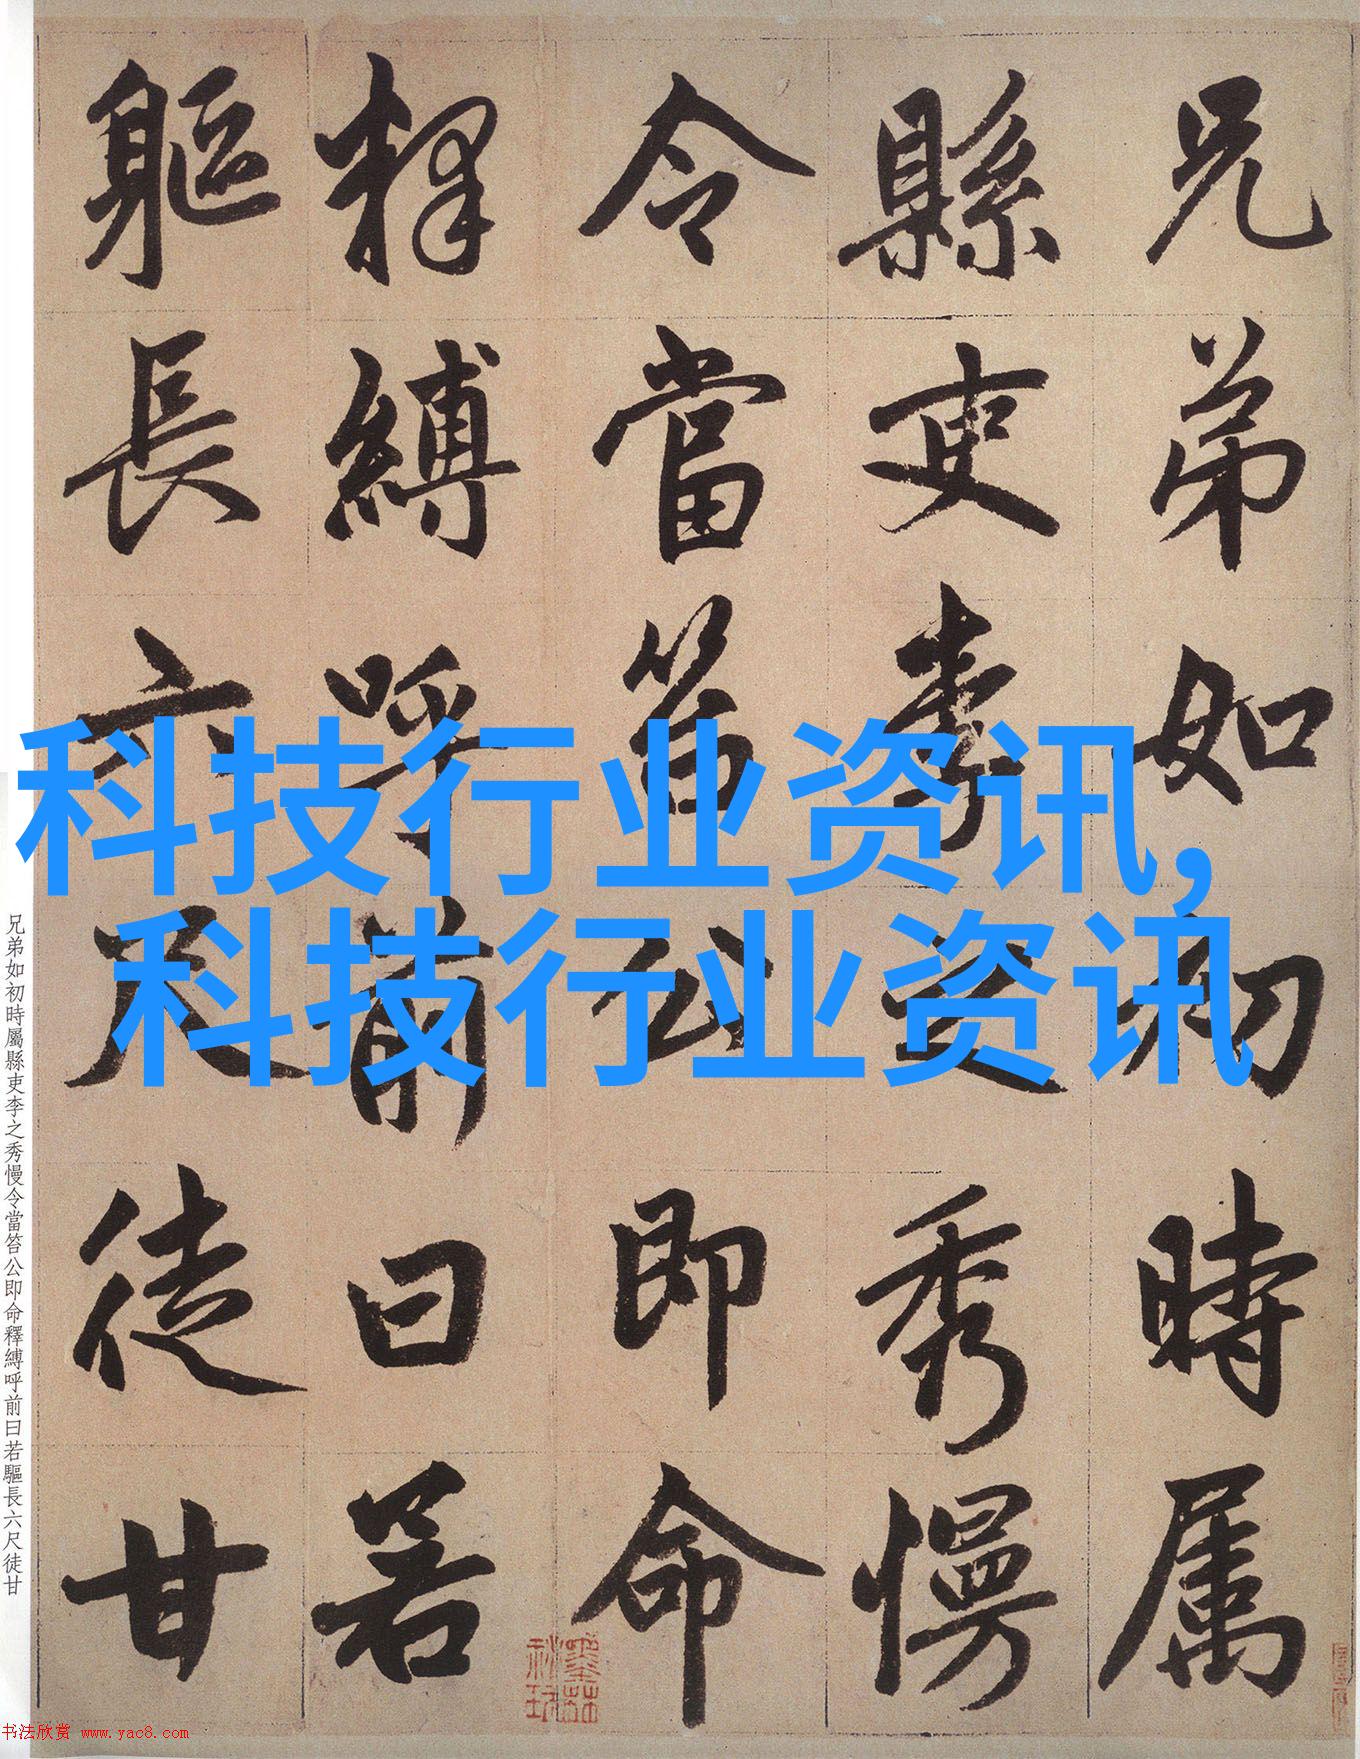 兄弟如初時属
縣吏李之秀慢
令當笞公即命
釋縛呼前曰若
軀長六尺徒甘
科技行业资讯,
科技行业资讯
兄弟如初時屬縣吏李之秀慢令當笞公即命釋縛呼前曰若驅長六尺徒甘
书法欣赏 www.yac8.com